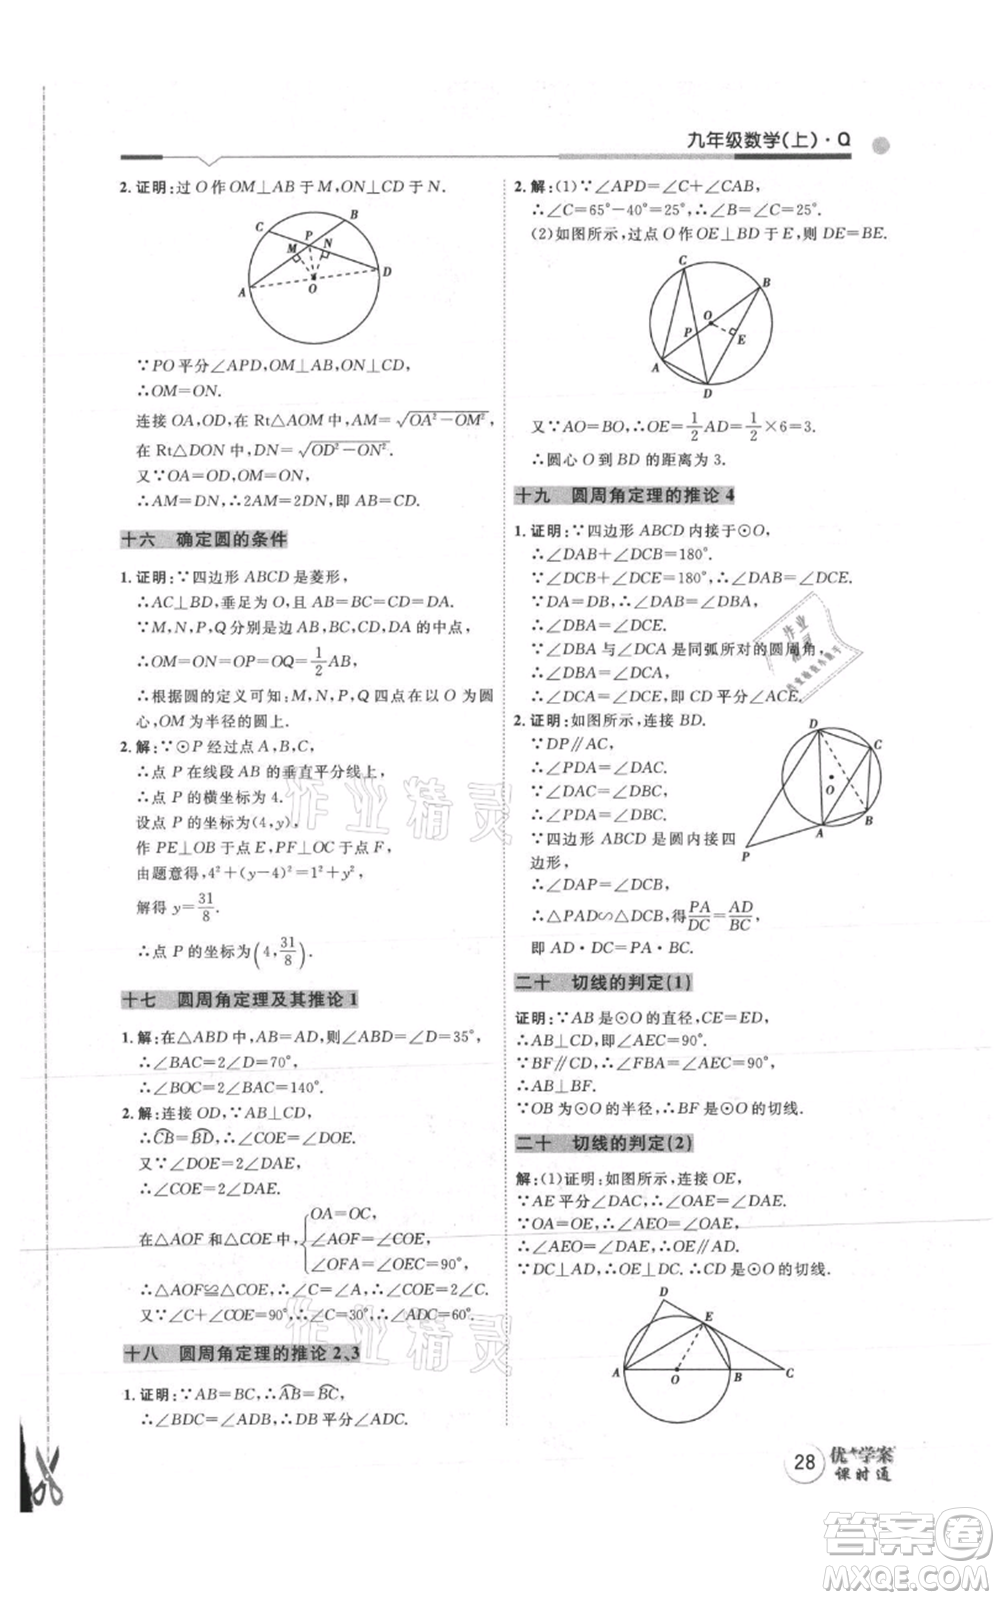 九年级数学(上)·Q
2.证明:过O作OM⊥AB于M,作ON⊥CD于N.
C
B
M
P
N
A
O
D
∵PO平分∠APD,OM⊥AB,OM⊥CD,
∴OM=ON.
连接OA,OD,在Rt△AOM中,AM=√(OA²-OM²),
在Rt△DON中,DN=√(OD²-ON²).
又∵OA=OD,OM=ON,
∴AM=DN,∴2AM=2DN,即AB=CD.
十六 确定圆的条件
1.证明:∵四边形ABCD是菱形,
∴AC⊥BD,垂足为O,且AB=BC=CD=DA.
∵M,N,P,Q分别是边AB,BC,CD,DA的中点,
∴OM=ON=OP=OQ=1/2AB,
∴根据圆的定义可知:M,N,P,Q四点在以O为圆
心,OM为半径的圆上.
2.解:∵⊙P经过点A,B,C,
∴点P在线段AB的垂直平分线上,
∴点P的横坐标为4.
设点P的坐标为(4,y),
作PE⊥OB于点E,PF⊥OC于点F,
由题意得,4²+(y-4)²=1²+y²,
解得y=31/8.
∴点P的坐标为(4,31/8).
十七 圆周角定理及其推论1
1.解:在△ABD中,AB=AD,则∠ABD=∠D=35°,
∴∠BAC=2∠D=70°,
∴∠BOC=2∠BAC=140°.
2.解:连接OD,∵AB⊥CD,
∴CB=BD,∴∠COE=∠DOE.
又∵∠DOE=2∠DAE,
∴∠COE=2∠DAE.
在△AOF和△COE中,{OA=OC,
∠AOF=∠COE,
∠OFA=∠OEC=90°,
∴△AOF≌△COE,∴∠C=∠A,∴∠COE=2∠C.
又∵∠C+∠COE=90°,∴∠C=30°,∴∠ADC=60°.
十八 圆周角定理的推论2、3
1.证明:∵AB=BC,∴AB=BC,
∴∠BDC=∠ADB,∴DB平分∠ADC.
2.解:(1)∵∠APD=∠C+∠CAB,
∴∠C=65°-40°=25°,∴∠B=∠C=25°.
(2)如图所示,过点O作OE⊥BD于E,则DE=BE.
C
B
O
P
E
A
D
又∵AO=BO,∴OE=1/2AD=1/2×6=3.
∴圆心O到BD的距离为3.
十九 圆周角定理的推论4
1.证明:∵四边形ABCD内接于⊙O,
∴∠DAB+∠DCB=180°.
∵∠DCB+∠DCE=180°,∴∠DAB=∠DCE.
∵DA=DB,∴∠DAB=∠DBA,
∴∠DBA=∠DCE.
∵∠DBA与∠DCA是同弧所对的圆周角,
∴∠DBA=∠DCA,
∴∠DCA=∠DCE,即CD平分∠ACE.
2.证明:如图所示,连接BD.
∵DP∥AC,
∴∠PDA=∠DAC.
∵∠DAC=∠DBC,
∴∠PDA=∠DBC.
∵四边形ABCD是圆内接四
边形,
∴∠DAP=∠DCB,
∴△PAD∽△DCB,得PA/DC=AD/BC,
即AD·DC=PA·BC.
D
C
O
B
A
P
二十 切线的判定(1)
证明:∵AB是⊙O的直径,CE=ED,
∴AB⊥CD,即∠AEC=90°.
∵BF∥CD,∴∠FBA=∠AEC=90°.
∴AB⊥BF.
∵OB为⊙O的半径,∴BF是⊙O的切线.
二十 切线的判定(2)
解:(1)证明:如图所示,连接OE,
∵AE平分∠DAC,∴∠OAE=∠DAE.
∵OA=OE,∴∠AEO=∠OAE,
∴∠AEO=∠DAE,∴OE∥AD.
∵DC⊥AD,∴OE⊥DC.∴CD是⊙O的切线.
D
E
A
O
B
C
28
优+学案
课时通
作业精灵
作业精灵
答案圈
MXQE.COM